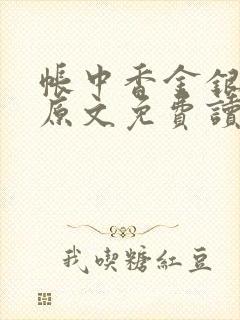 帳中香金銀
原文免費讀
我喫糖紅豆